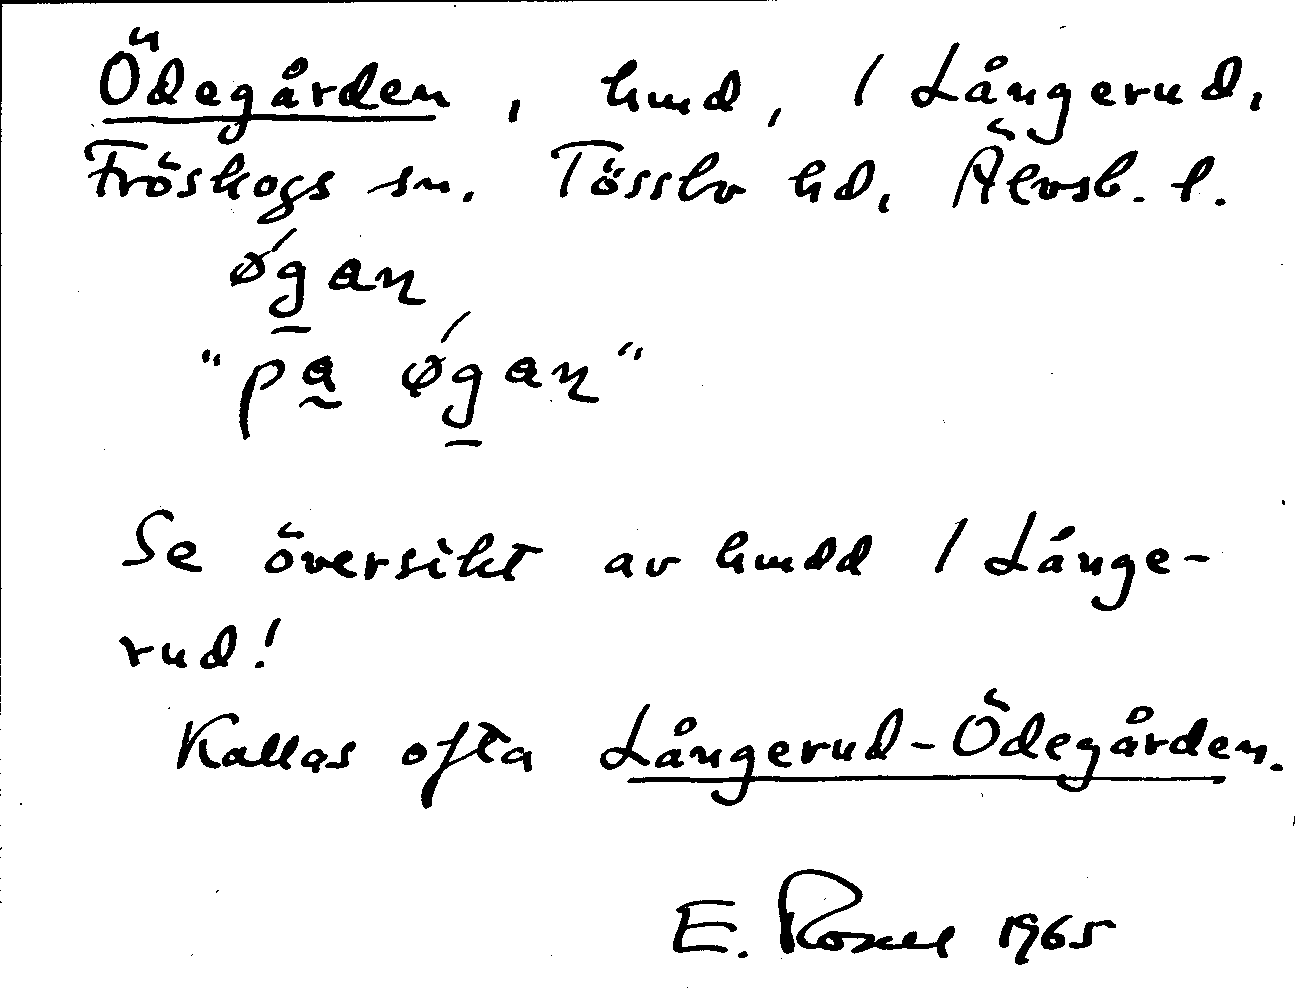 Ödegården, hmd, / Långerud,
Fröskogs sn. Tössbo hd, Älvsb. l.
ǿg̲an
"pa̰ ǿg̲an"
Se översikt av hmdd / Långe-
rud!
Kallas ofta Långerud-Ödegården.
E. Rosell 1965